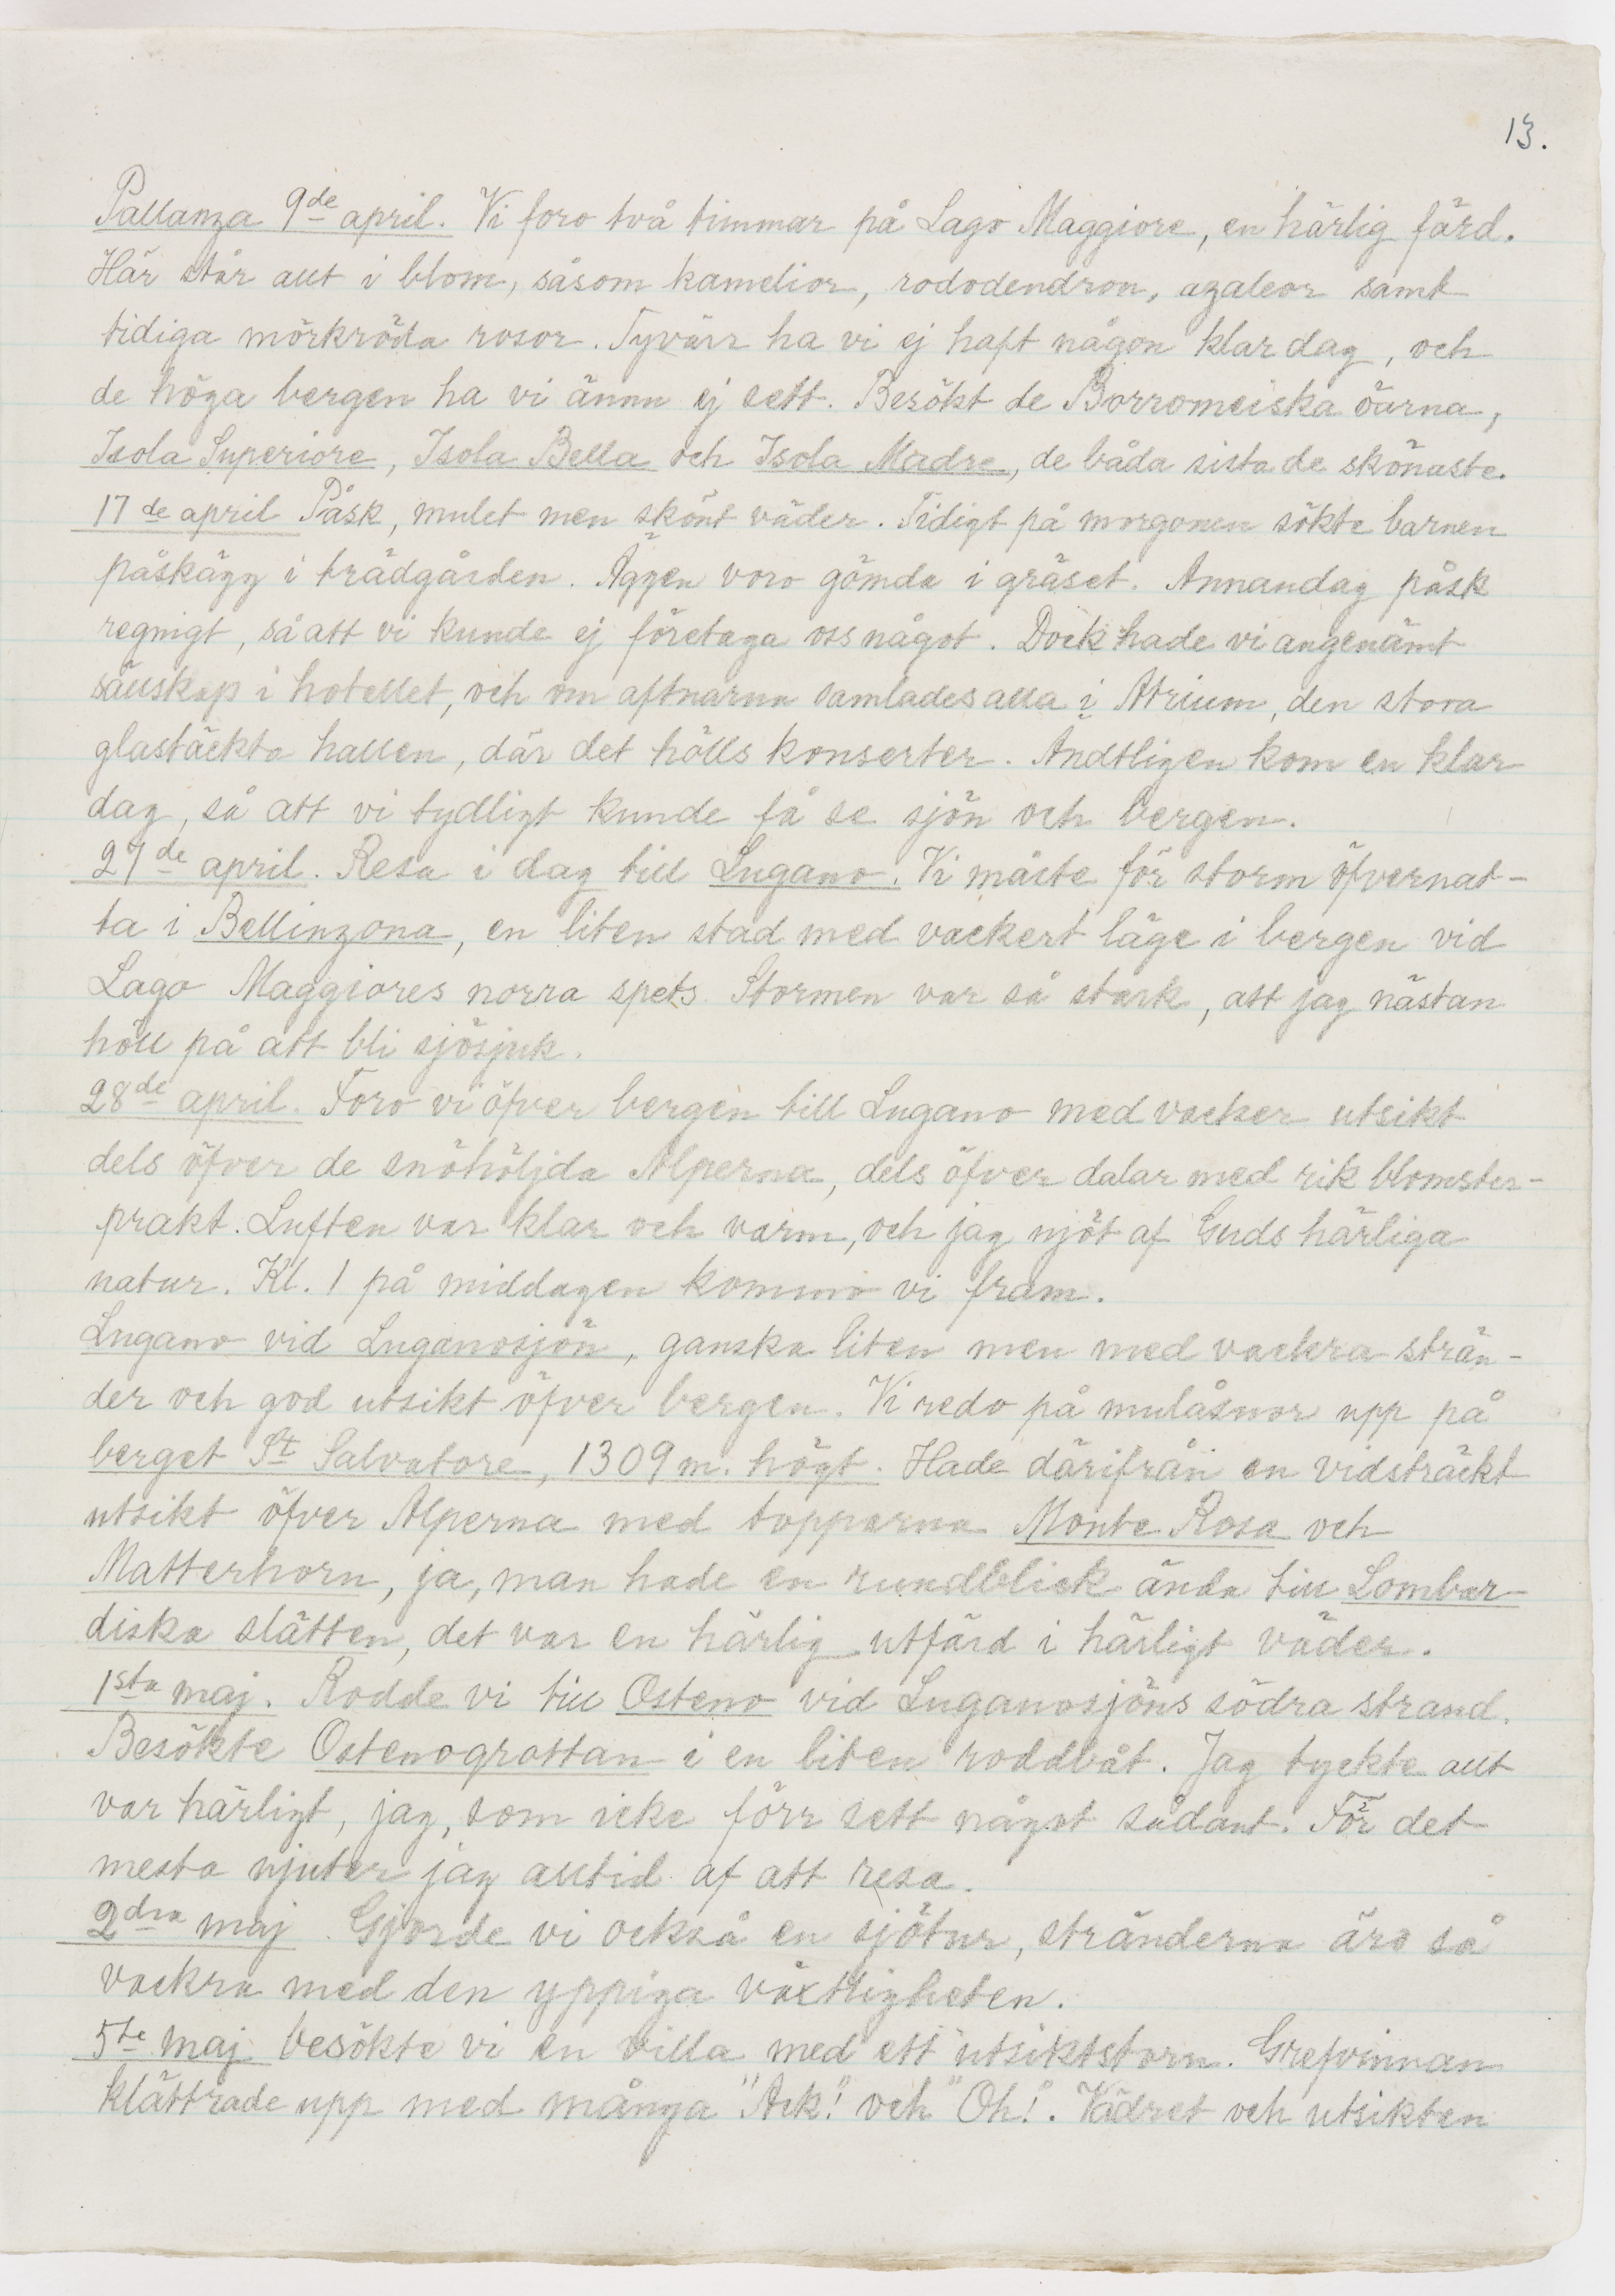 13.
Pallanza 9de april. Vi foro två timmar på Lago Maggiore, en härlig färd.
Här står allt i blom, såsom kamelior, rododendron, azaleor samt
tidiga mörkröda rosor. Tyvärr ha vi ej haft någon klar dag, och
de höga bergen ha vi ännu ej sett. Besökt de Borromeiska öarna,
Isola Superiore, Isola Bella och Isola Madre, de båda sista de skönaste.
17de april Påsk, mulet men skönt väder. Tidigt på morgonen sökte barnen
påskägg i trädgården. Äggen voro gömda i gräset. Annandag påsk
regnigt, så att vi kunde ej företaga oss något. Dock hade vi angenämt
sällskap i hotellet, och om aftnarna samlades alla i Atrium, den stora
glastäckta hallen, där det hölls konserter. Ändtligen kom en klar
dag, så att vi tydligt kunde få se sjön och bergen.
27de april. Resa i dag till Lugano. Vi måste för storm öfvernat-
ta i Bellinzona, en liten stad med vackert läge i bergen vid
Lago Maggiores norra spets. Stormen var så stark, att jag nästan
höll på att bli sjösjuk.
28de april. Foro vi öfver bergen till Lugano med vacker utsikt
dels öfver de snöhöljda Alperna, dels öfver dalar med rik blomster-
prakt. Luften var klar och varm, och jag njöt af Guds härliga
natur. Kl. 1 på middagen kommo vi fram.
Lugano vid Luganosjön, ganska liten men med vackra strän-
der och god utsikt öfver bergen. Vi redo på mulåsnor upp på
berget St Salvatore, 1309 m. högt. Hade därifrån en vidsträckt
utsikt öfver Alperna med topparna Monte Rosa och
Matterhorn, ja, man hade en rundblick ända till Lombar-
diska slätten, det var en härlig utfärd i härligt väder.
1sta maj. Rodde vi till Osteno vid Luganosjöns södra strand.
Besökte Ostenogrottan i en liten roddbåt. Jag tyckte allt
var härligt, jag, som icke förr sett något sådant. För det
mesta njuter jag alltid af att resa.
2dra maj. Gjorde vi också en sjötur, stränderna äro så
vackra med den yppiga växtligheten.
5te maj besökte vi en villa med ett utsiktstorn. Grefvinnan
klättrade upp med många "Ack!" och "Oh!". Vädret och utsikten